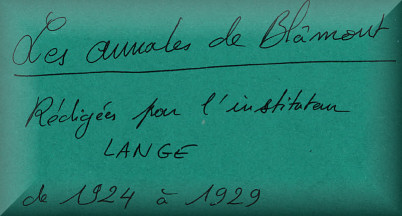 Les annales de Blâmont
Rédigées par l'instituteur
LANGE
de 1924 à 1929